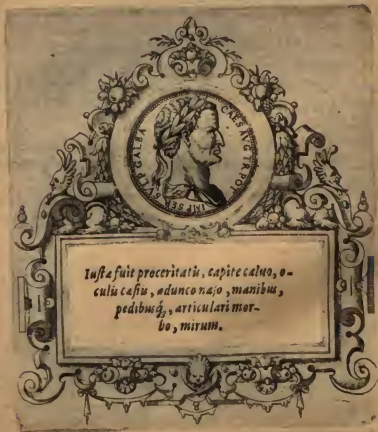 IMP SER SVLP GALBA CAES AVG TR POT
Iustæ fuit proceritatis, capite caluo, o-
culis cæsiis, adunco naso, manibus,
pedibusq́, articulari mor-
bo, mirum.